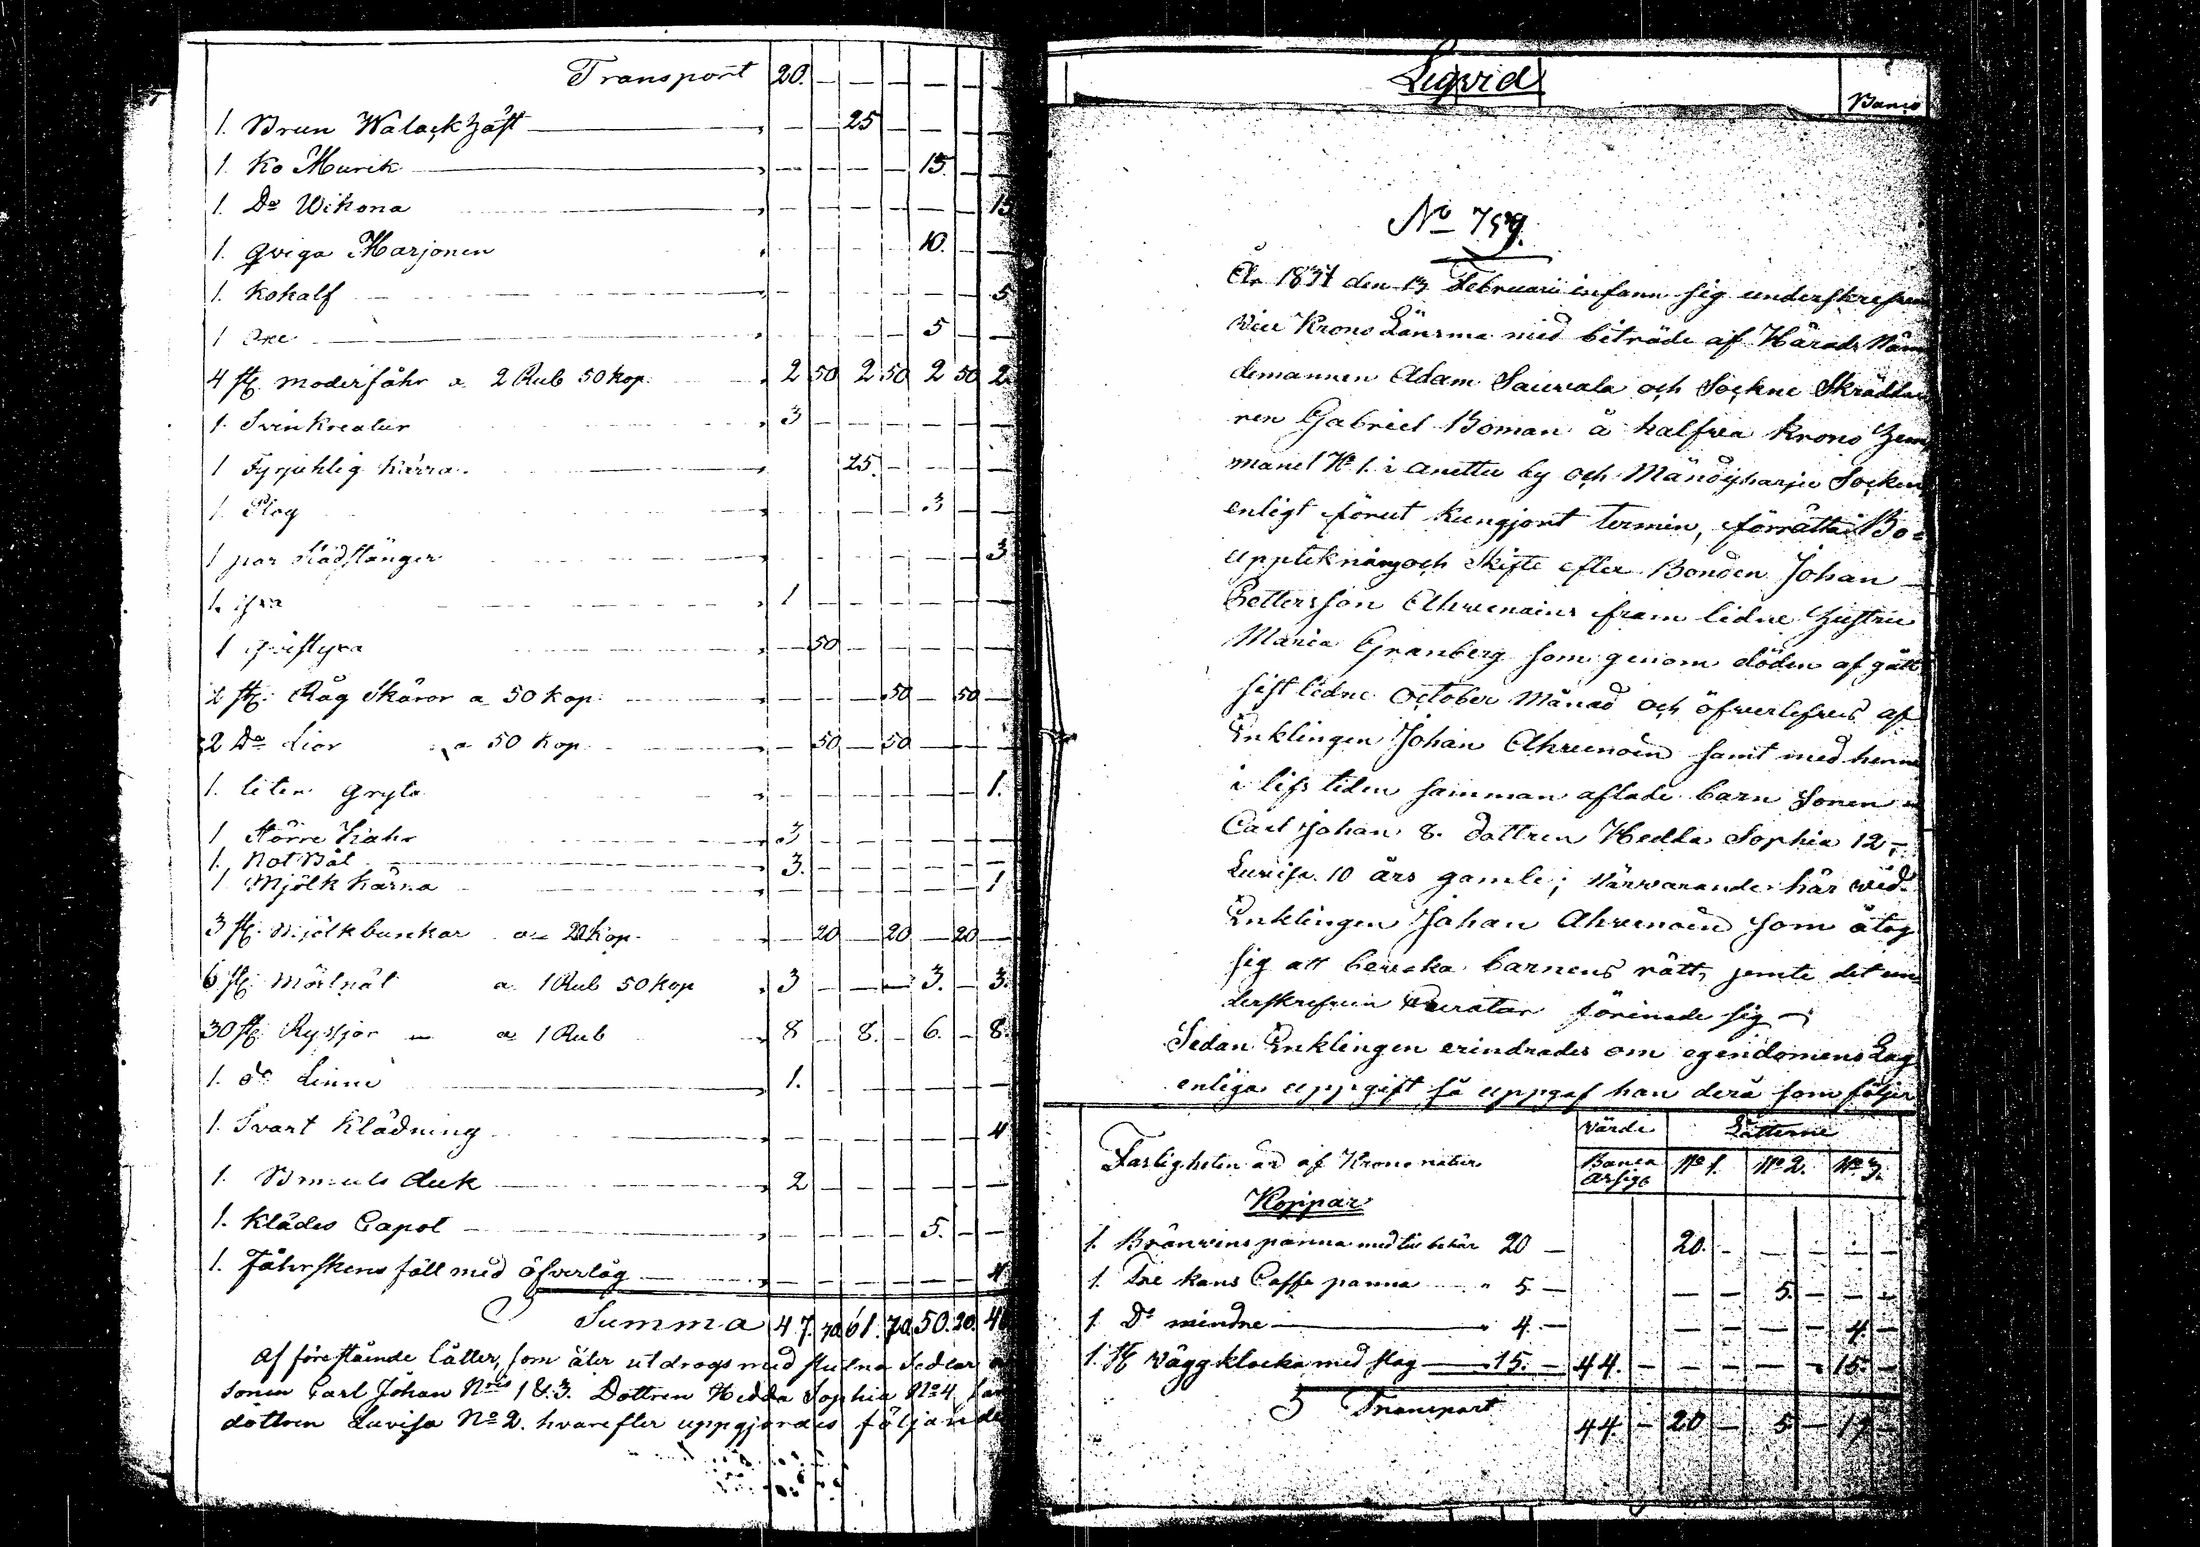 Transport 20. — — — — — —
1. Brun Walack häst — — 25 — — — —
1. Ko Murik — — — — 15. — —
1. Do Wikona — — — — — — 15
1. Qviga Marjonen — — — — 10. — —
1. Kokalf — — — — — — 5
1 Oxe — — — — 5 — —
4 st. moderfåhr a 2 Rub 50 kop. 2 50 2 50 2 50 2.
1. Svinkreatur 3 — — — — — —
1 Fyrjuhlig kärra. — — 25. — — — —
1. Plog — — — — 3 — —
1 par — — — — — — 3
1. 1 — — — — — —
1 — 50 — — — — —
2 st. Råg Skäror a 50 kop. — — — 50 — 50 —
2 Do Liar a 50 kop — 50 — 50 — — —
1. liten gryta — — — — — — 1.
1 större 3 — — — — — —
1. Not Båt 3. — — — — — —
1 Mjölk kärna — — — — — — 1
3 st. Mjölkbunkar a 20 kop. — 20 — 20 — 20 —
6 st. Mörtnät a 1 Rub 50 kop 3 — — — 3. — 3.
30 st. Ryssjor a 1 Rub 8 — 8. — 6. — 8.
1. do 1. — — — — — —
1. Svart Klädning — — — — — — 4
1. duk 2 — — — — — —
1. Klädes Capot — — — — 5. — —
1. Fåhrskens fäll med öfverlag — — — — — — 4
Summa 47. 70 61. 70. 50. 20.
Af föreståénde låtter, som äter utdrogs med slutna Sedlar
Sonen Carl Johan Nris 1 & 3. Dottren Hedda Sophia No 4
dottren Lovisa No 2. hvarefter uppgjordes följande
Liqvid
Banco
No 759.
År 1837 den 13 Februarii infann sig underskrefven
Vice Krono Länsma med biträde af Härads Näm
demannen Adam Saurala och Sockne Skrädda
ren Gabriel Boman å halfva Krono Hem
manet No 1. i Anttu by och Mändyharju Socken
enligt förut kungjort termin, förrätta Bo=
uppteknäng och Skifte efter Bonden Johan
Pettersson Ahwenains framlidne Hustru
Maria Granberg som genom döden afgått
sistlidne October Månad och öfverlefves af
Enklingen Johan Ahwenain samt med henne
i lifstiden samman aflade barn Sonen
Carl Johan 8. dottren Hedda Sophia 12,
Lovisa 10 års gamle; närvarande här vid
Enklingen Johan Ahvenain som åtog
sig att bevaka barnens rätt, jemte det un
derskrefven Curator förinade sig —
Sedan Enklingen erindrades om egendomens Lag
enliga uppgift så uppgaf han derå som följer
Värde Låtterne
Fastigheten är af Krono natur Banco No 1. No 2. No 3.
Koppar
1. Bränvins panna med tilbehör 20 — 20. — — — — —
1 Tre kans Caffe panna 5. — — — 5. — — —
1. Do mindre 4. — — — — — 4. —
1. St Väggklocka med slag 15. — 44. — — — — — 15. —
Transport 44. — 20 — 5 — 19 —